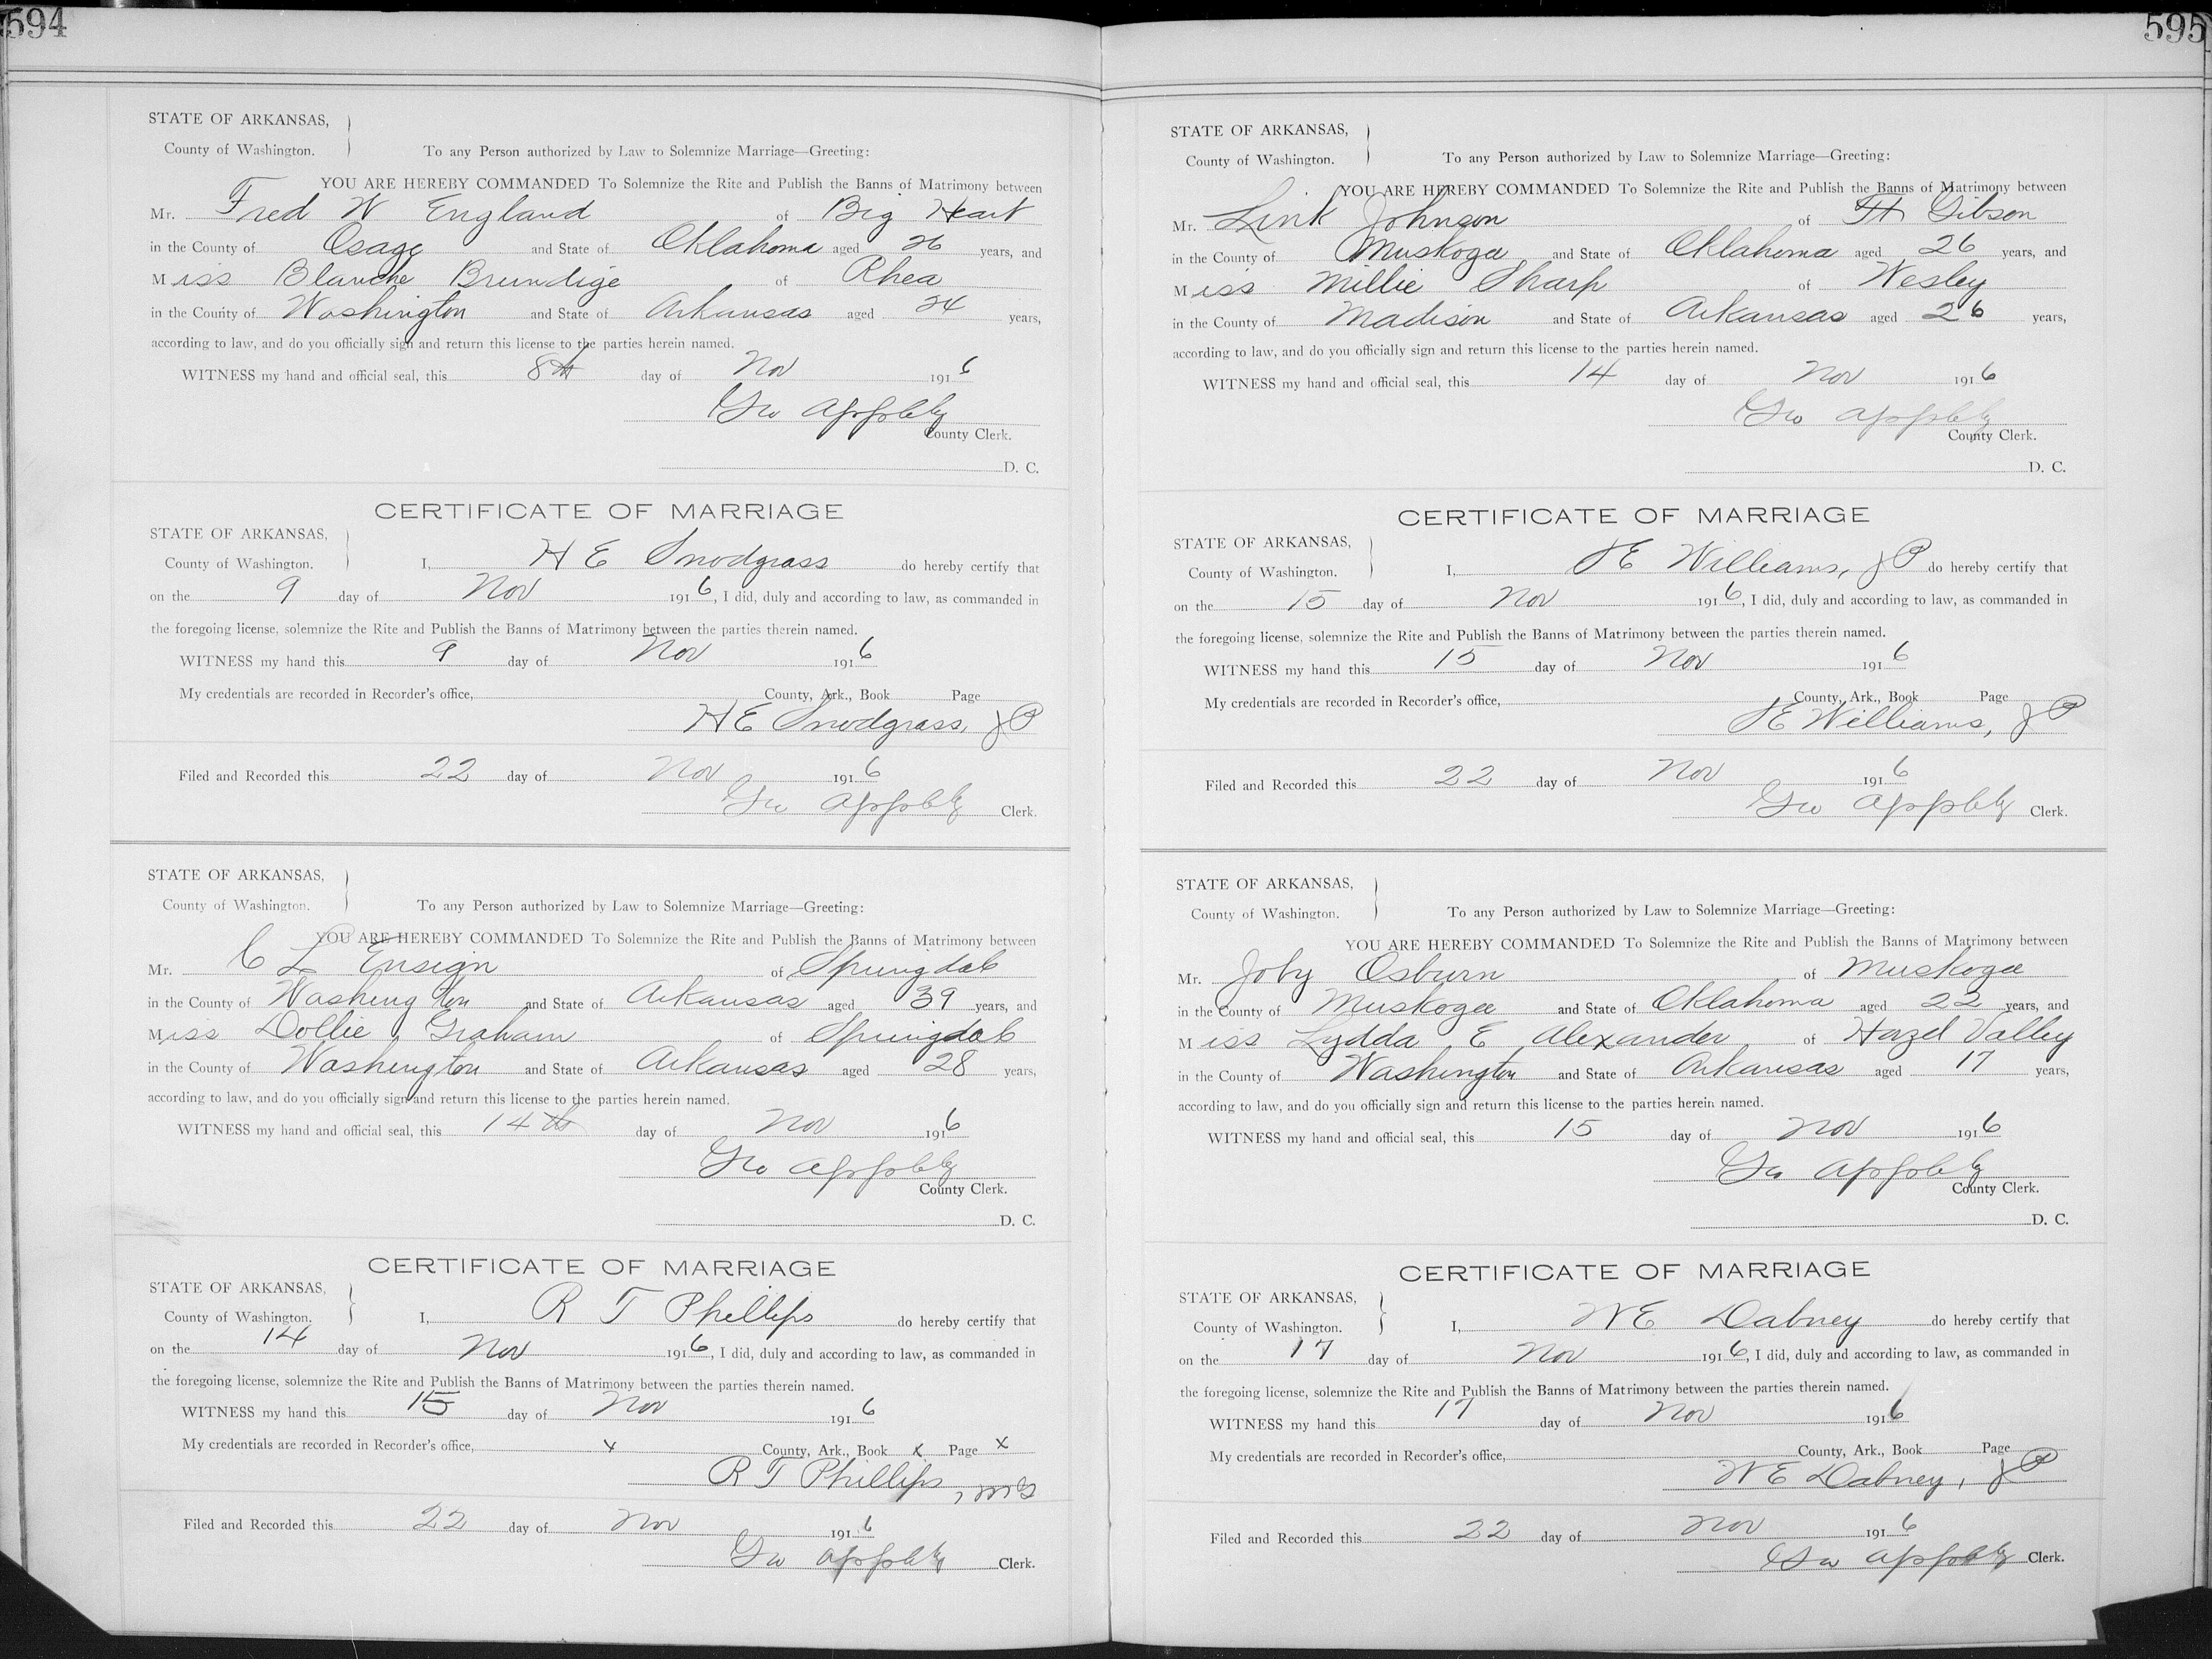 594
STATE OF ARKANSAS,
County of Washington.
To any Person authorized by Law to Solemnize Marriage—Greeting:
YOU ARE HEREBY COMMANDED To Solemnize the Rite and Publish the Banns of Matrimony between
Mr. Fred W England of Big Heart
in the County of Osage and State of Oklahoma aged 26 years, and
Miss Blanche Brundige of Rhea
in the County of Washington and State of Arkansas aged 24 years,
according to law, and do you officially sign and return this license to the parties herein named.
WITNESS my hand and official seal, this 8th day of Nov 1916
Geo Appleby
County Clerk.
D. C.
CERTIFICATE OF MARRIAGE
STATE OF ARKANSAS,
County of Washington.
I, H E Snodgrass do hereby certify that
on the 9 day of Nov 1916, I did, duly and according to law, as commanded in
the foregoing license, solemnize the Rite and Publish the Banns of Matrimony between the parties therein named.
WITNESS my hand this 9 day of Nov 1916
My credentials are recorded in Recorder's office, County, Ark., Book Page
H E Snodgrass, JP
Filed and Recorded this 22 day of Nov 1916
Geo Appleby Clerk.
STATE OF ARKANSAS,
County of Washington.
To any Person authorized by Law to Solemnize Marriage—Greeting:
YOU ARE HEREBY COMMANDED To Solemnize the Rite and Publish the Banns of Matrimony between
Mr. C L Ensign of Springdale
in the County of Washington and State of Arkansas aged 39 years, and
Miss Dollie Graham of Springdale
in the County of Washington and State of Arkansas aged 28 years,
according to law, and do you officially sign and return this license to the parties herein named.
WITNESS my hand and official seal, this 14th day of Nov 1916
Geo Appleby
County Clerk.
D. C.
CERTIFICATE OF MARRIAGE
STATE OF ARKANSAS,
County of Washington.
I, R T Phillips do hereby certify that
on the 14 day of Nov 1916, I did, duly and according to law, as commanded in
the foregoing license, solemnize the Rite and Publish the Banns of Matrimony between the parties therein named.
WITNESS my hand this 15 day of Nov 1916
My credentials are recorded in Recorder's office, x County, Ark., Book x Page x
R T Phillips, MG
Filed and Recorded this 22 day of Nov 1916
Geo Appleby Clerk.
595
STATE OF ARKANSAS,
County of Washington.
To any Person authorized by Law to Solemnize Marriage—Greeting:
YOU ARE HEREBY COMMANDED To Solemnize the Rite and Publish the Banns of Matrimony between
Mr. Link Johnson of Ft Gibson
in the County of Muskogee and State of Oklahoma aged 26 years, and
Miss Millie Sharp of Wesley
in the County of Madison and State of Arkansas aged 26 years,
according to law, and do you officially sign and return this license to the parties herein named.
WITNESS my hand and official seal, this 14 day of Nov 1916
Geo Appleby
County Clerk.
D. C.
CERTIFICATE OF MARRIAGE
STATE OF ARKANSAS,
County of Washington.
I, E Williams, JP do hereby certify that
on the 15 day of Nov 1916, I did, duly and according to law, as commanded in
the foregoing license, solemnize the Rite and Publish the Banns of Matrimony between the parties therein named.
WITNESS my hand this 15 day of Nov 1916
My credentials are recorded in Recorder's office, County, Ark., Book Page
E Williams, JP
Filed and Recorded this 22 day of Nov 1916
Geo Appleby Clerk.
STATE OF ARKANSAS,
County of Washington.
To any Person authorized by Law to Solemnize Marriage—Greeting:
YOU ARE HEREBY COMMANDED To Solemnize the Rite and Publish the Banns of Matrimony between
Mr. Joby Osburn of Muskogee
in the County of Muskogee and State of Oklahoma aged 22 years, and
Miss Lydda E Alexander of Hazel Valley
in the County of Washington and State of Arkansas aged 17 years,
according to law, and do you officially sign and return this license to the parties herein named.
WITNESS my hand and official seal, this 15 day of Nov 1916
Geo Appleby
County Clerk.
D. C.
CERTIFICATE OF MARRIAGE
STATE OF ARKANSAS,
County of Washington.
I, W E Dabney do hereby certify that
on the 17 day of Nov 1916, I did, duly and according to law, as commanded in
the foregoing license, solemnize the Rite and Publish the Banns of Matrimony between the parties therein named.
WITNESS my hand this 17 day of Nov 1916
My credentials are recorded in Recorder's office, County, Ark., Book Page
W E Dabney, JP
Filed and Recorded this 22 day of Nov 1916
Geo Appleby Clerk.